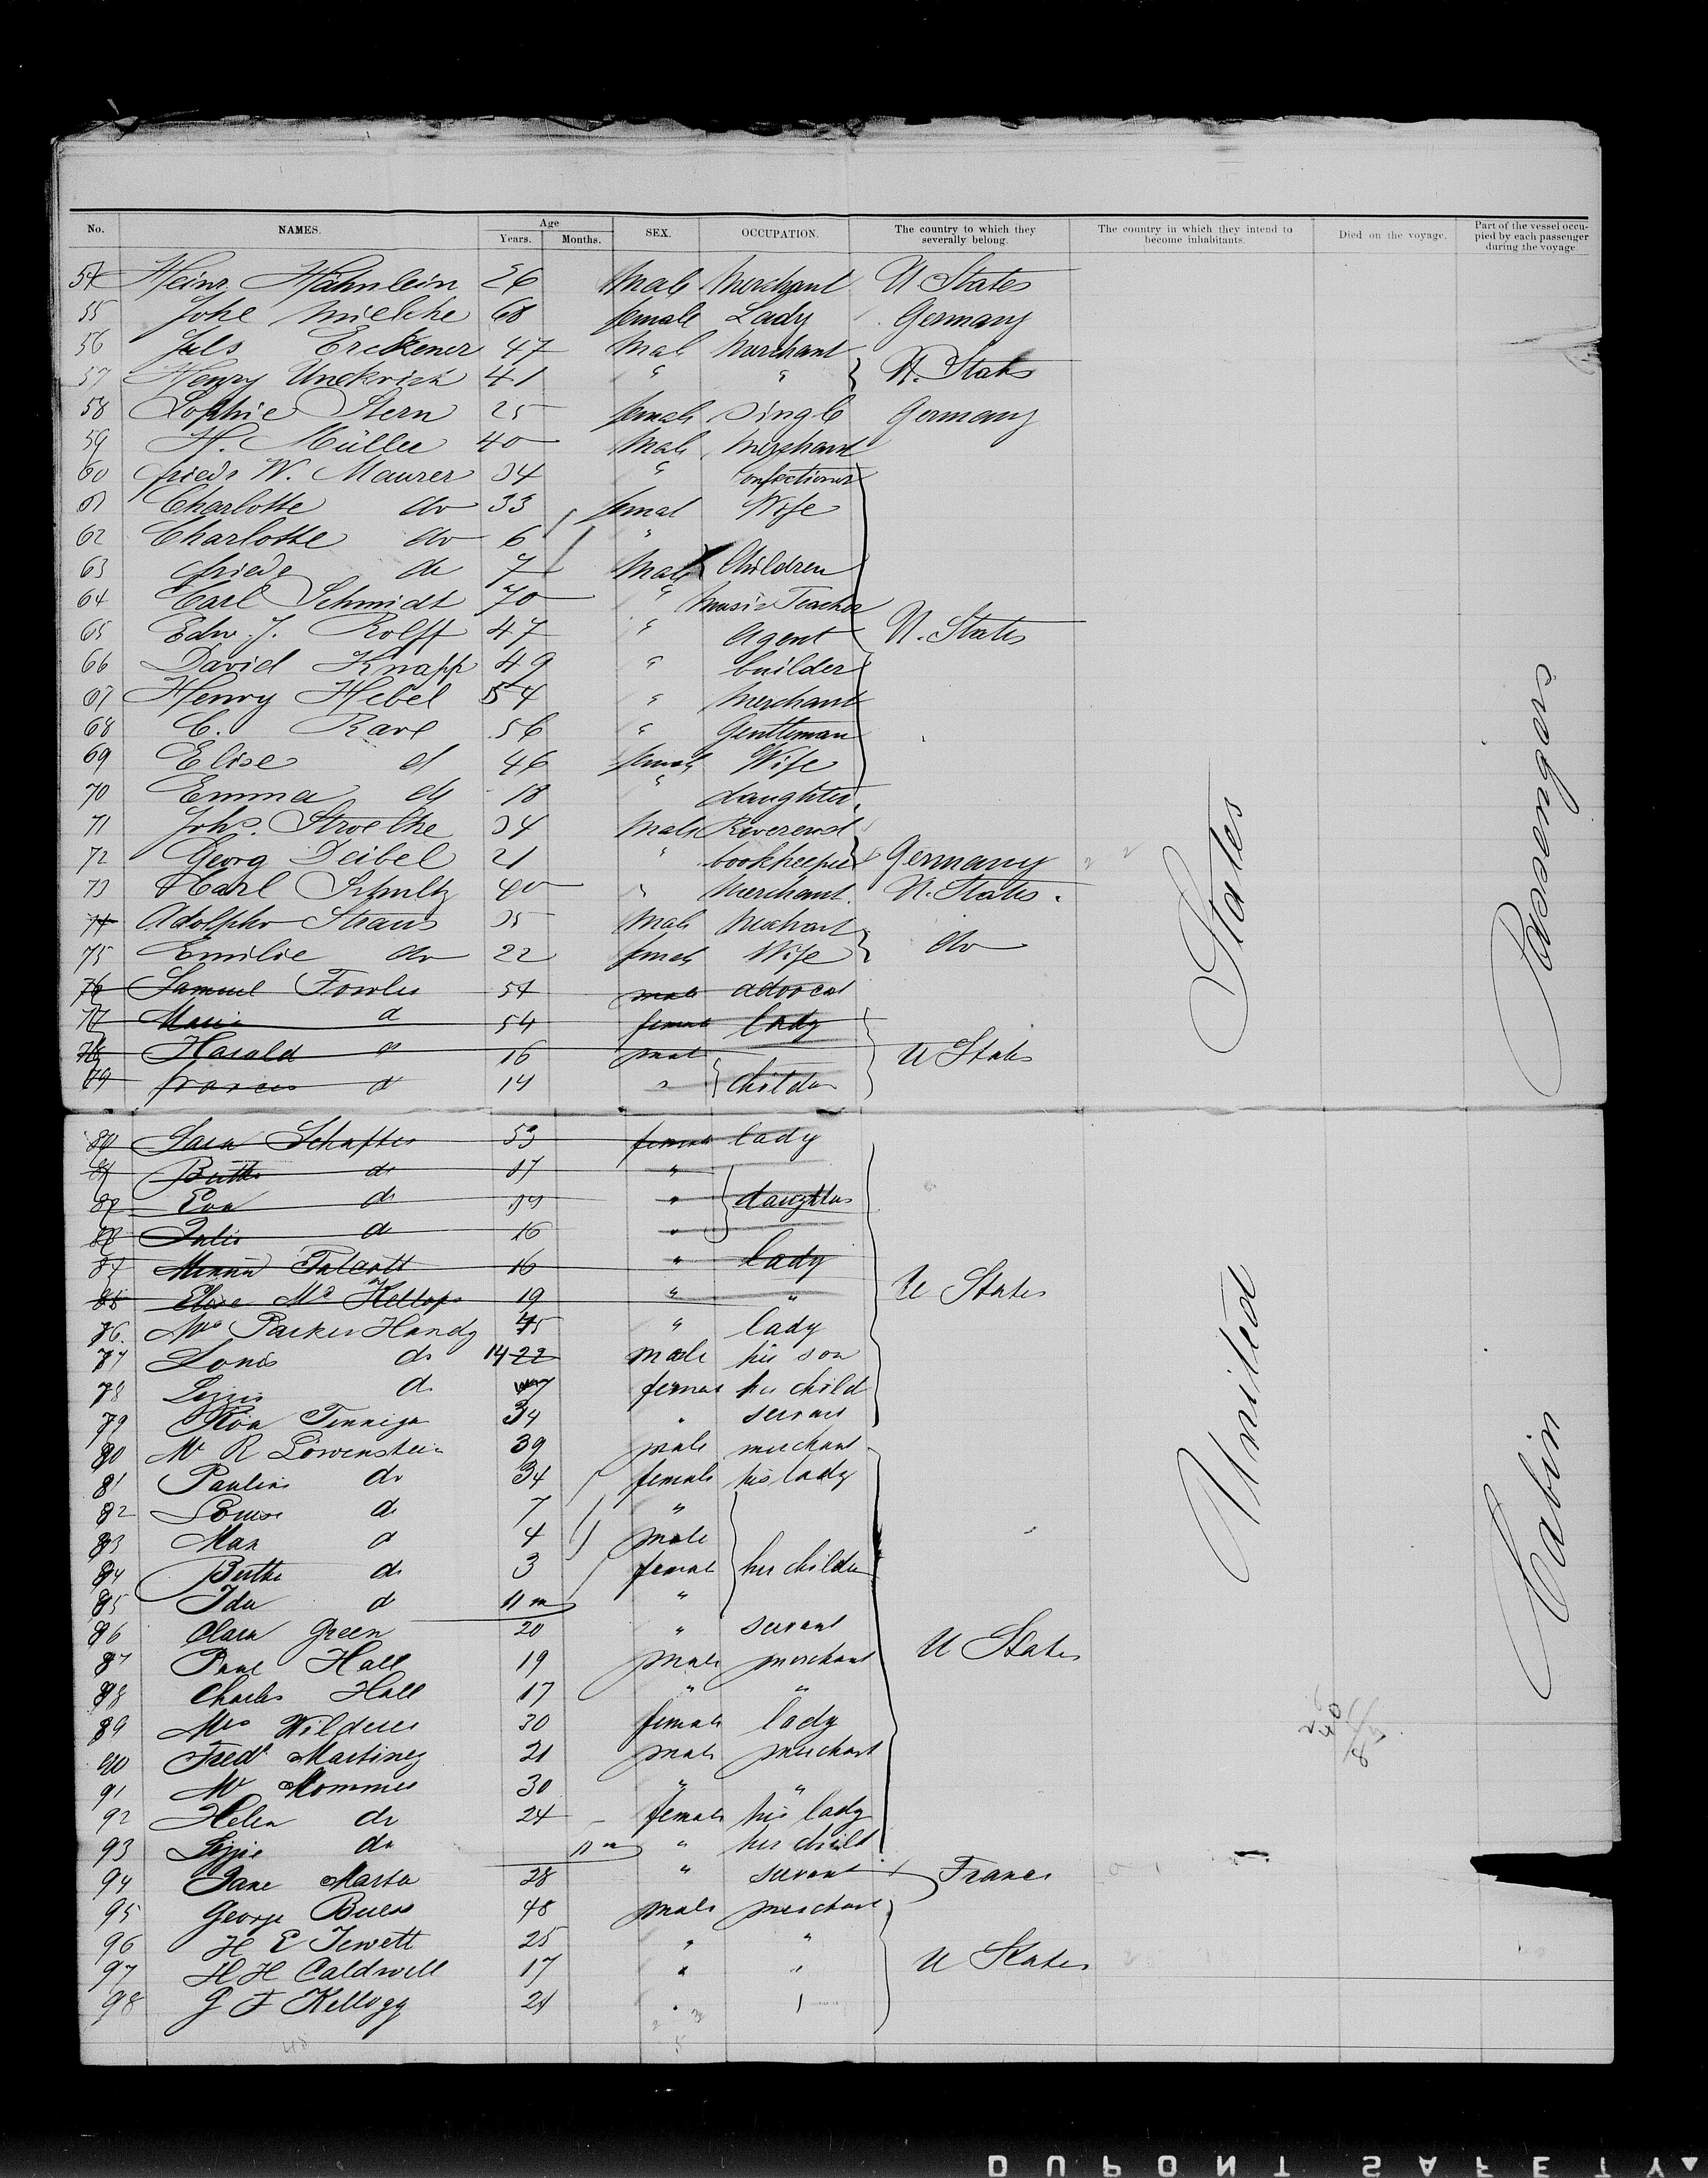 No. NAMES. Age Years. Months. SEX. OCCUPATION. The country to which they severally belong. The country in which they intend to become inhabitants. Died on the voyage. Part of the vessel occupied by each passenger during the voyage.
54 Heinr. Hähnlein 26 Male Merchant U States
55 Johe Mielche 68 female Lady Germany
56 Juls Erckener 47 Male Merchant
57 Henry Unckrich 41 " " U. States
58 Sophie Stern 25 female Single Germany
59 H. Müller 40 Male Merchant
60 friedr W. Maurer 34 " Confectioner
61 Charlotte do 33 femal Wife
62 Charlotte do 6 "
63 friedr do 7 Male Children
64 Carl Schmidt 70 " Music Teacher
65 Edw. J. Rolff 47 " Agent U. States
66 David Knapp 49 " builder
67 Henry Hebel 54 " Merchant
68 C. Rave 56 " Gentleman
69 Elise d 46 female Wife
70 Emma do 18 " daughter
71 Johs. Stroelke 34 Male Reverend
72 Georg Deibel 21 " bookkeeper Germany
73 Karl Schultz 40 " Merchant. U. States.
74 Adolphe Straus 35 Male Merchant
75 Emilie do 22 female Wife do
76 Samuel Fowler 54 male advocat
77 Maria d 54 female lady
78 Harald d 16 male U States
79 frances d 14 " Children
80 Sara Schafter 53 female lady
81 Bertha do 17 "
82 Eva do 19 " daughters
83 Julia d 16 "
84 Minnie Talcott 16 " lady
85 Elise Mc Kellops 19 " " U States
76. Mrs Parker Handy 45 " lady
77 Louis do 14 22 male his son
78 Lizzie d. female her child
79 Rosa 34 " servant
80 Mr R Löwenstein 39 male merchant
81 Paulina do 34 female his lady
82 Louise do 7 "
83 Max d 4 male
84 Bertha do 3 female her children
85 Ida d 11 m "
86 Clara Green 20 " servant
87 Paul Hall 19 male merchant U States
88 Charles Hall 17 " "
89 Mrs Wilderer 30 female lady
90 Fredr Martinez 21 male merchant
91 Mr Mommer 30 " "
92 Helen do 24 female his lady
93 Lizzie do 11 m " her child
94 Jane Marta 28 " servant France
95 George Buess 48 male merchant
96 H E Jewett 25 " "
97 H H Caldwell 17 " " U States
98 G F Kellogg 24 "
United States
Cabin Passengers
DUPONT SAFETY